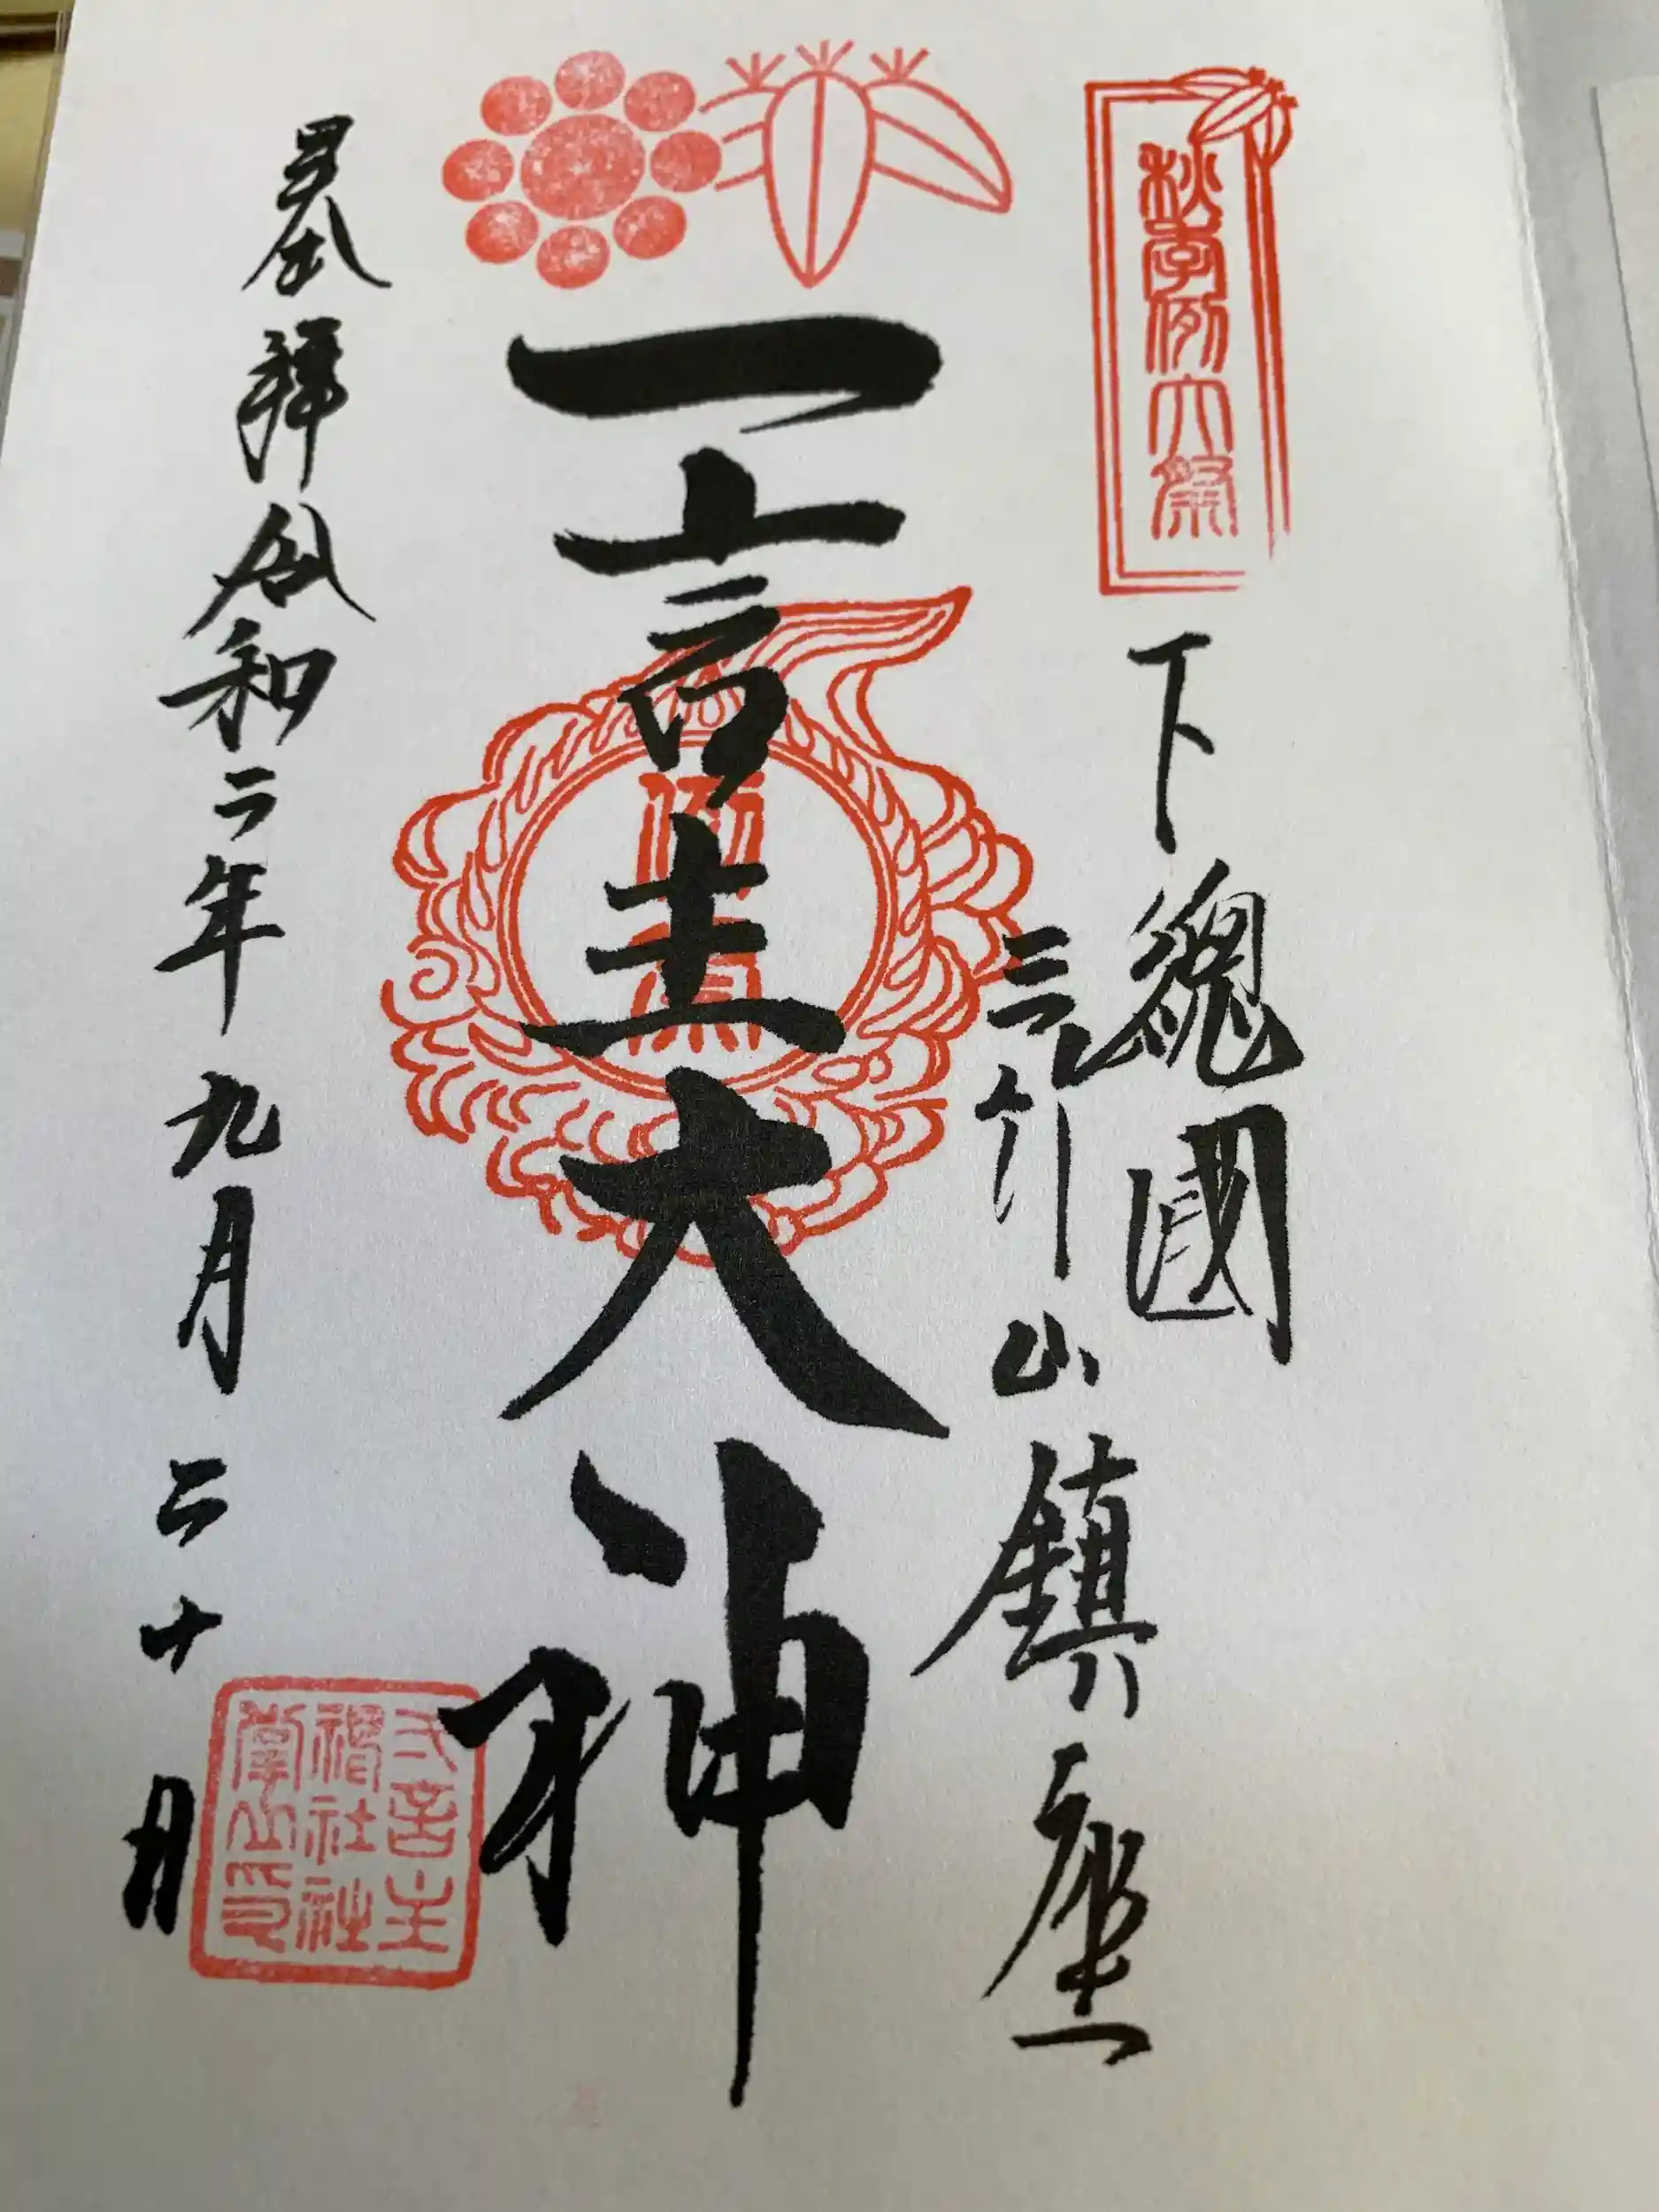 秋季例大祭
下總國
三竹山鎮座
一言主大神
例大祭
奉拝 令和二年九月二十日
一言主
神社社
掌之印